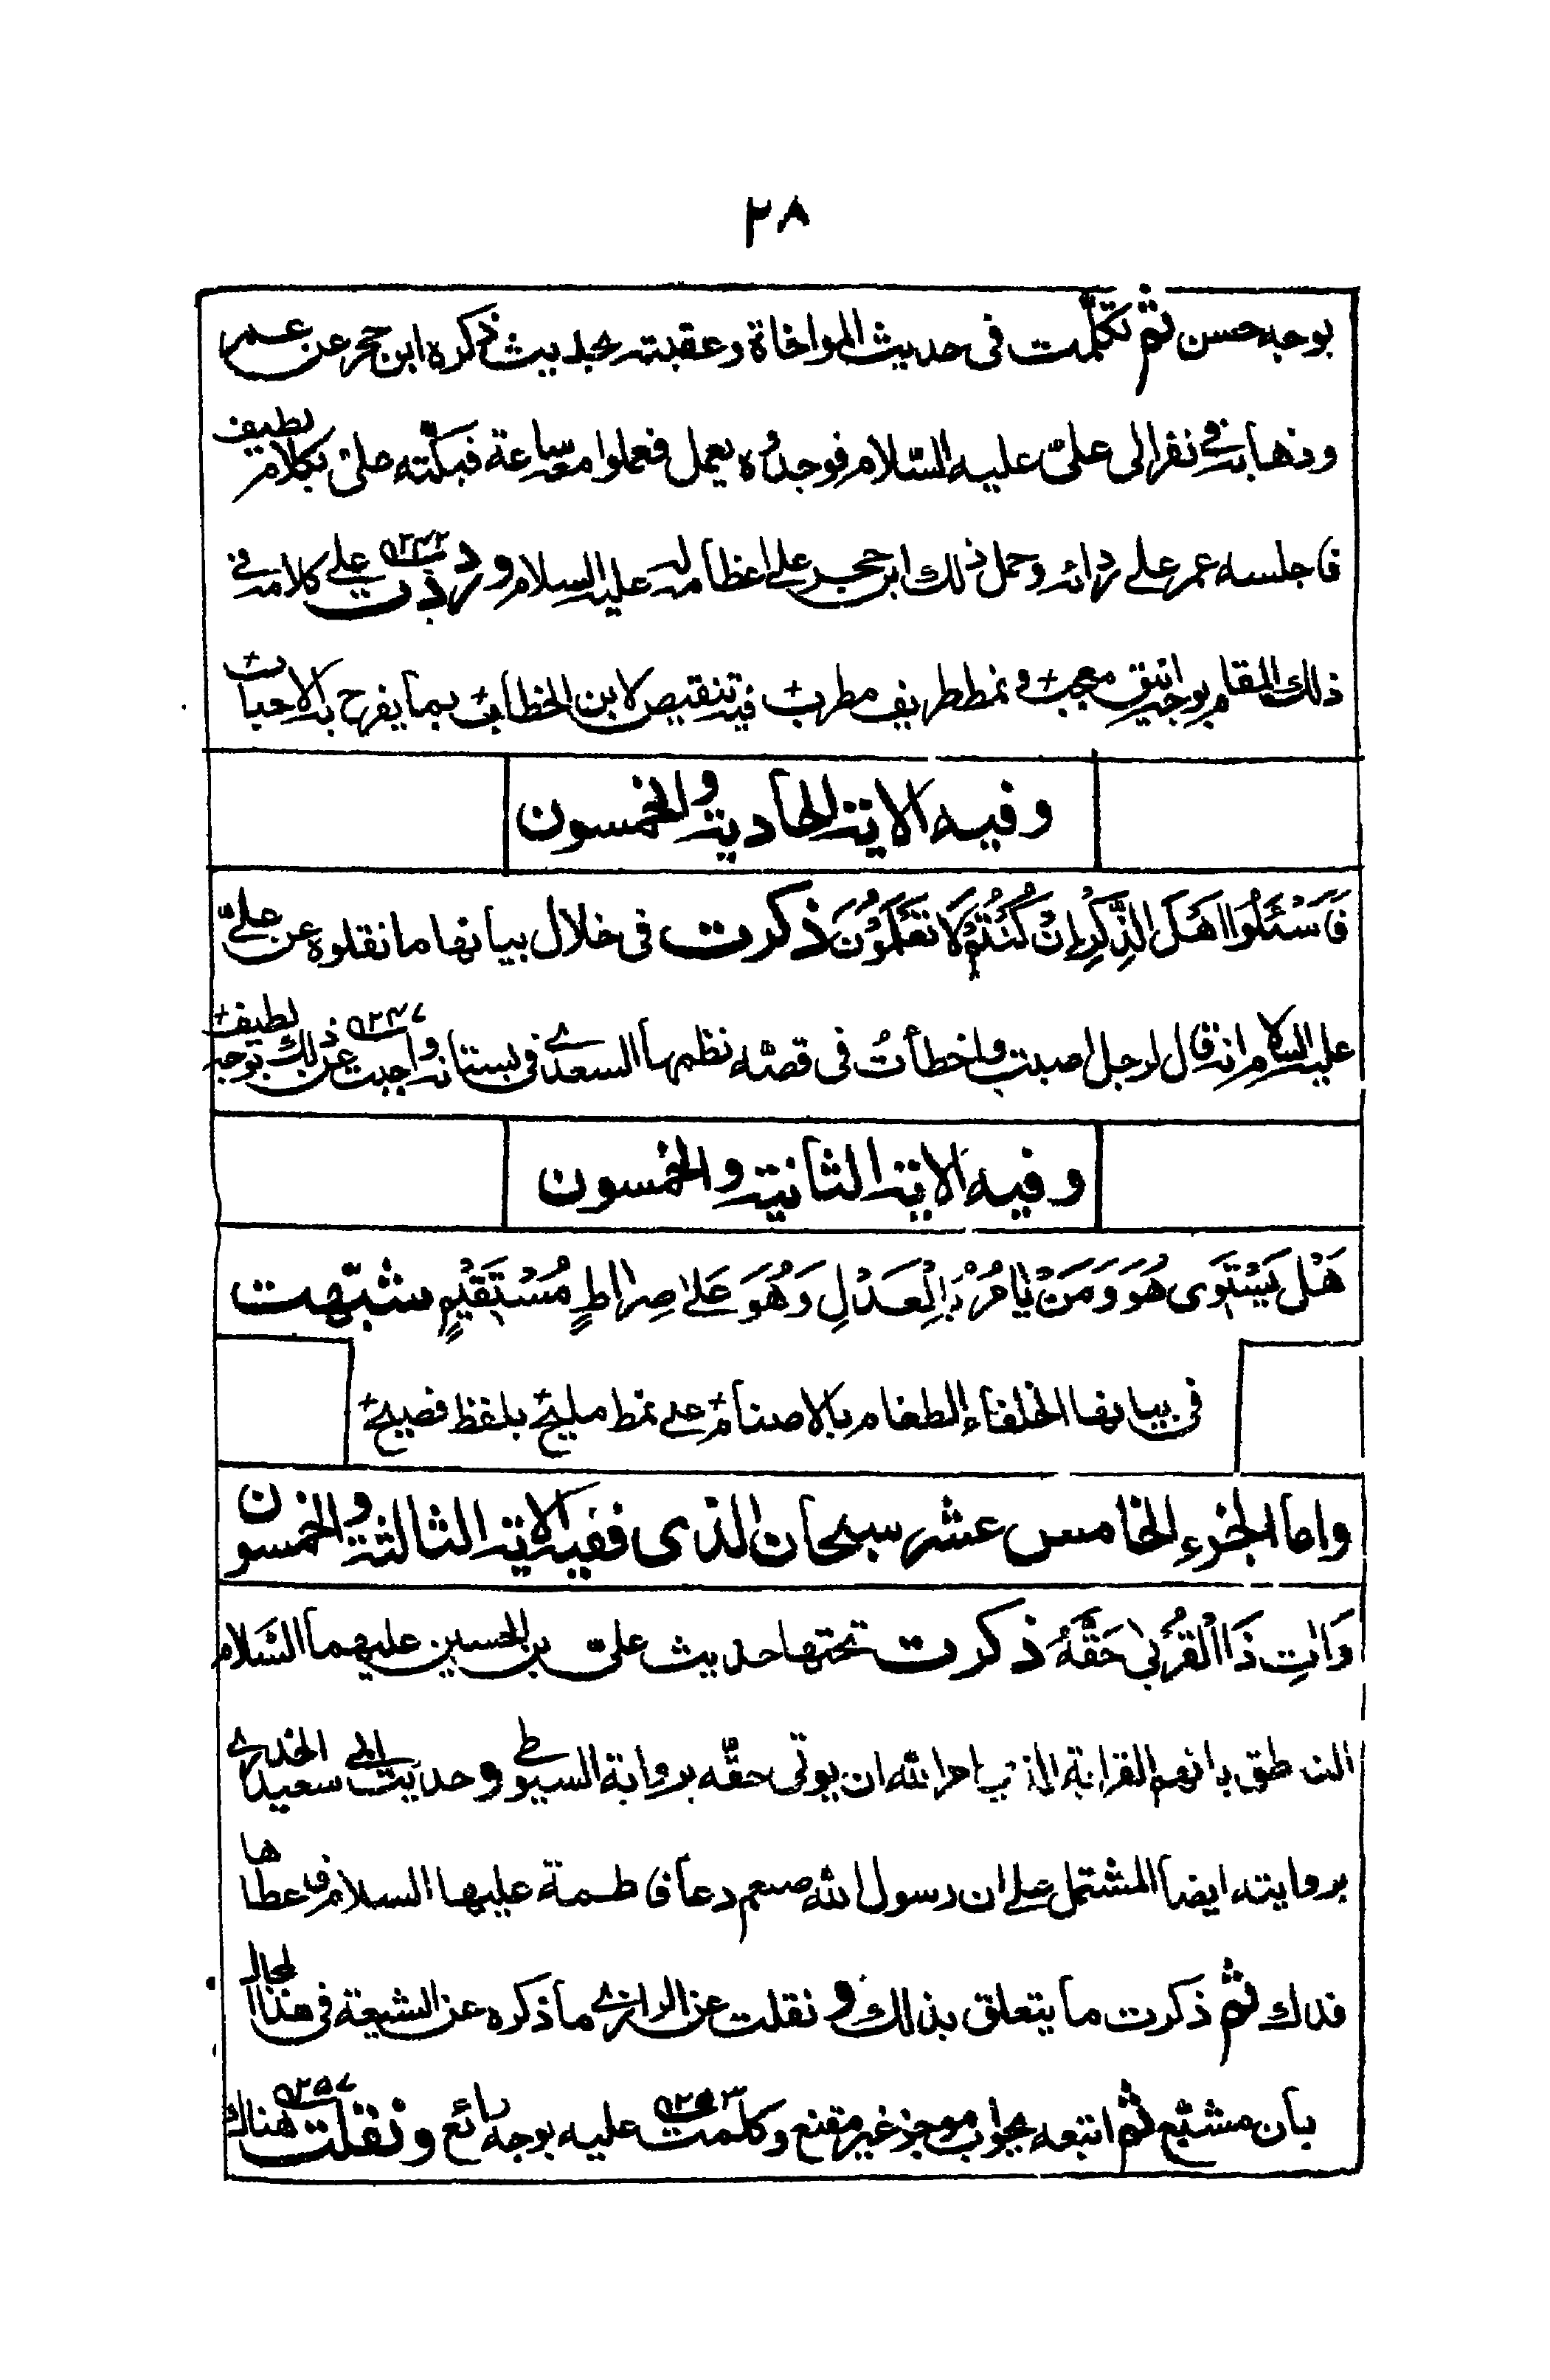 ٢٨
بوجه حسن ثم تكلّمت فى حديث المواخاة وعقبته بحديث ذكره ابن حجر عن عمر
وذهابه فى نفر الى علىّ عليه السّلام فوجدوه يعمل فعملوا معه ساعة فبكّته علىّ بكلام لطيف
فاجلسه عمر على ردائه وحمل ذلك ابن حجر على اعظامه له عليه السلام ورددت على كلامه فى
ذلك المقام بوجه انيق معجب ونمط طريف مطرب فيه تنقيص لابن الخطاب بما يفرح به الاحباب
وفيه الاية الحادية والخمسون
فَاسْئَلُوا اهَلَ الذِّكْرِ اِنْ كُنْتُمْ لَا تَعْلَمُوْنَ ذكرت فى خلال بيانها ما نقلوه عن علىّ
عليه السلام انه قال لرجل اصبت واخطأتُ فى قصّة نظمها السعدى فى بستانه واجبت عن ذلك بوجه لطيف
وفيه الاية الثانية والخمسون
هَلْ يَسْتَوِى هُوَ وَمَنْ يَّامُرُ بِالْعَدْلِ وَهُوَ عَلىٰ صِرَاطٍ مُسْتَقِيْمٍ شبّهت
فى بيانها الخلفاء الطغام بالاصنام على نمط مليح بلفظ فصيح
واما الجزء الخامس عشر سبحان الذى ففيه الاية الثالثة والخمسون
وَاٰتِ ذَا الْقُرْبىٰ حَقَّهٗ ذكرت تحتها حديث علىّ بن الحسين عليهما السّلام
الناطق بانهم القرابة الذى امر الله ان يوتى حقّه برواية السيوطى وحديث ابى سعيد الخدرى
بروايته ايضا المشتمل على ان رسول الله صلعم دعا فاطمة عليها السلام فاعطاها
فدك ثم ذكرت ما يتعلق بذلك و نقلت عن الرازى ما ذكره عن الشيعة فى هذا المجال
بان مشبّع ثم اتبعه بجواب موجز غير مقنع وكلّمت عليه بوجه بائع و نقلت هناك